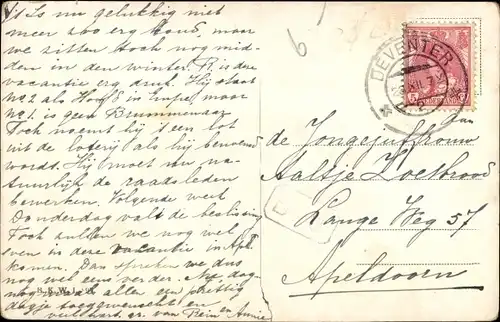 't Is nu gelukkig niet
meer zoo erg koud, maar
we zitten toch nog mid-
den in den winter. R. is die
vacantie erg druk. Hij staat
no 2 als Hoofd in Empe, maar
no 1. is geen Brummenaar
Toch noemt hij 't een lot
uit de loterij als hij benoemd
wordt. Hij moet nu na-
tuurlijk de raadsleden
bewerken. Volgende week
Donderdag valt de beslissing
Toch zullen we nog wel
even in deze vacantie in Apel.
komen. Dan spreken we dus
nog wel eens verder. Nu dag-
nog allen een prettig
dagje toegewenscht en
hart. gr. van Rein en Annie
DEVENTER
Aan
de Jongejuffrouw
Aaltje Zoetbrood
Lange Weg 57
Apeldoorn